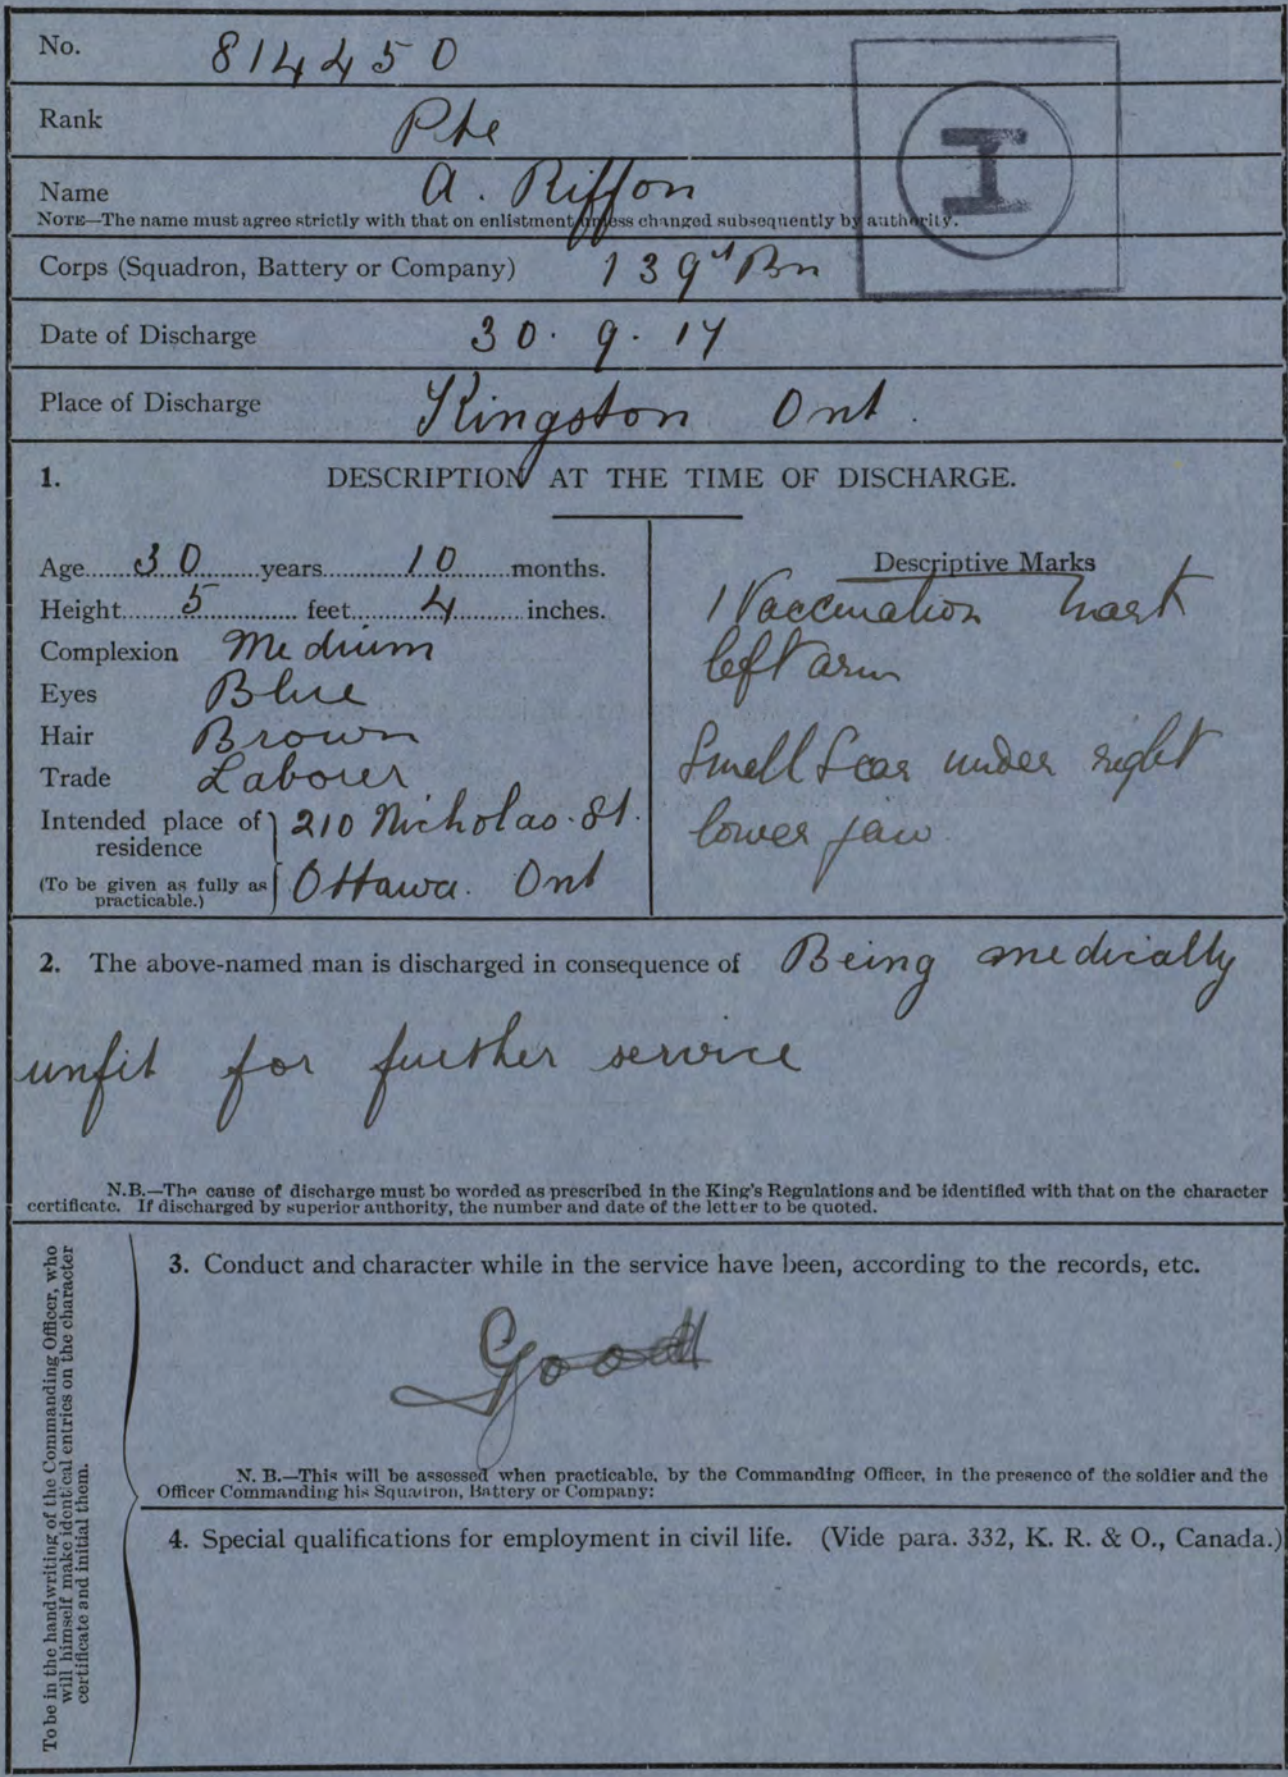 No. 814450
Rank Pte
Name A. Riffon
NOTE—The name must agree strictly with that on enlistment unless changed subsequently by authority.
I
Corps (Squadron, Battery or Company) 139th Bn
Date of Discharge 30. 9. 17
Place of Discharge Kingston Ont.
1. DESCRIPTION AT THE TIME OF DISCHARGE.
Age 30 years 10 months.
Height 5 feet 4 inches.
Complexion Medium
Eyes Blue
Hair Brown
Trade Labourer
Intended place of residence 210 Nicholas. St.
(To be given as fully as practicable.) Ottawa. Ont
Descriptive Marks
1 Vaccination mark
left arm
Small Scar under right
lower jaw
2. The above-named man is discharged in consequence of Being medically
unfit for further service
N.B.—The cause of discharge must be worded as prescribed in the King's Regulations and be identified with that on the character
certificate. If discharged by superior authority, the number and date of the letter to be quoted.
To be in the handwriting of the Commanding Officer, who
will himself make identical entries on the character
certificate and initial them.
3. Conduct and character while in the service have been, according to the records, etc.
Good
N. B.—This will be assessed when practicable, by the Commanding Officer, in the presence of the soldier and the
Officer Commanding his Squadron, Battery or Company:
4. Special qualifications for employment in civil life. (Vide para. 332, K. R. & O., Canada.)